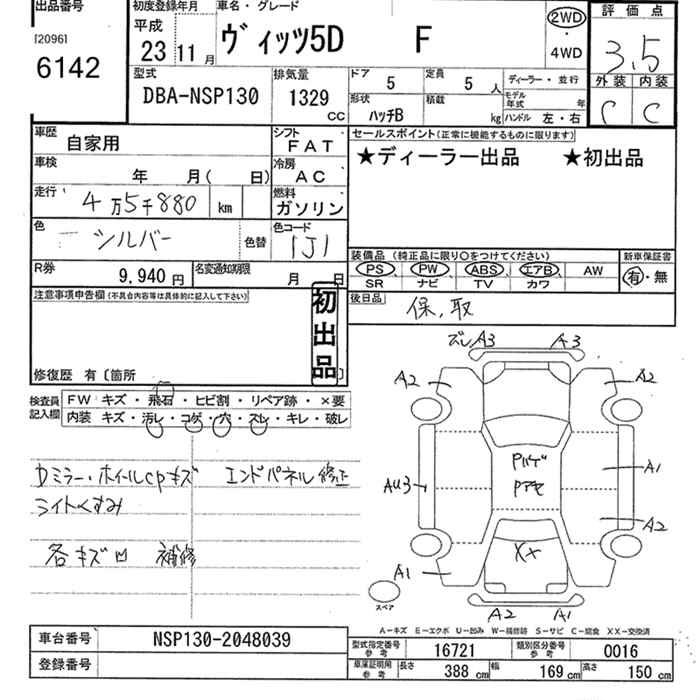 出品番号
[2096]
6142
初度登録年月
平成
23 11 月
車名・グレード
ヴィッツ5D F
2WD
・
4WD
評価点
3.5
外装 内装
C C
型式
DBA-NSP130
排気量
1329
CC
ドア 5
定員 5 人
形状 ハッチB
積載 kg
ディーラー・並行
モデル年式 年
ハンドル 左・右
車歴 自家用
シフト FAT
車検 年 月( 日)
冷房 AC
走行 4万5千880 km
燃料 ガソリン
色 シルバー
色替
色コード 1J1
R券 9,940 円
名変通知期限 月 日
セールスポイント(正常に機能するものに限ります)
★ディーラー出品 ★初出品
装備品 (純正品に限り○をつけてください)
PS PW ABS エアB AW
SR ナビ TV カワ
新車保証書
有・無
後日品 保,取
注意事項申告欄 (不具合内容等は具体的に記入して下さい)
初出品
修復歴 有 [箇所 ]
検査員記入欄
FW キズ・飛石・ヒビ割・リペア跡・×要
内装 キズ・汚レ・コゲ・穴・スレ・キレ・破レ
Dミラー・ホイールcpキズ エンドパネル修正
ライトくすみ
各キズ凹 補修
ズレ A3 A3
A2 A2
AU3
A1
A2
XX
A1
A2 A1
スペア
A-キズ E-エクボ U-凹み W-補修跡 S-サビ C-腐食 XX-交換済
車台番号 NSP130-2048039
登録番号
型式指定番号 参考 16721
類別区分番号 参考 0016
車庫証明用 参考 長さ 388 cm 幅 169 cm 高さ 150 cm